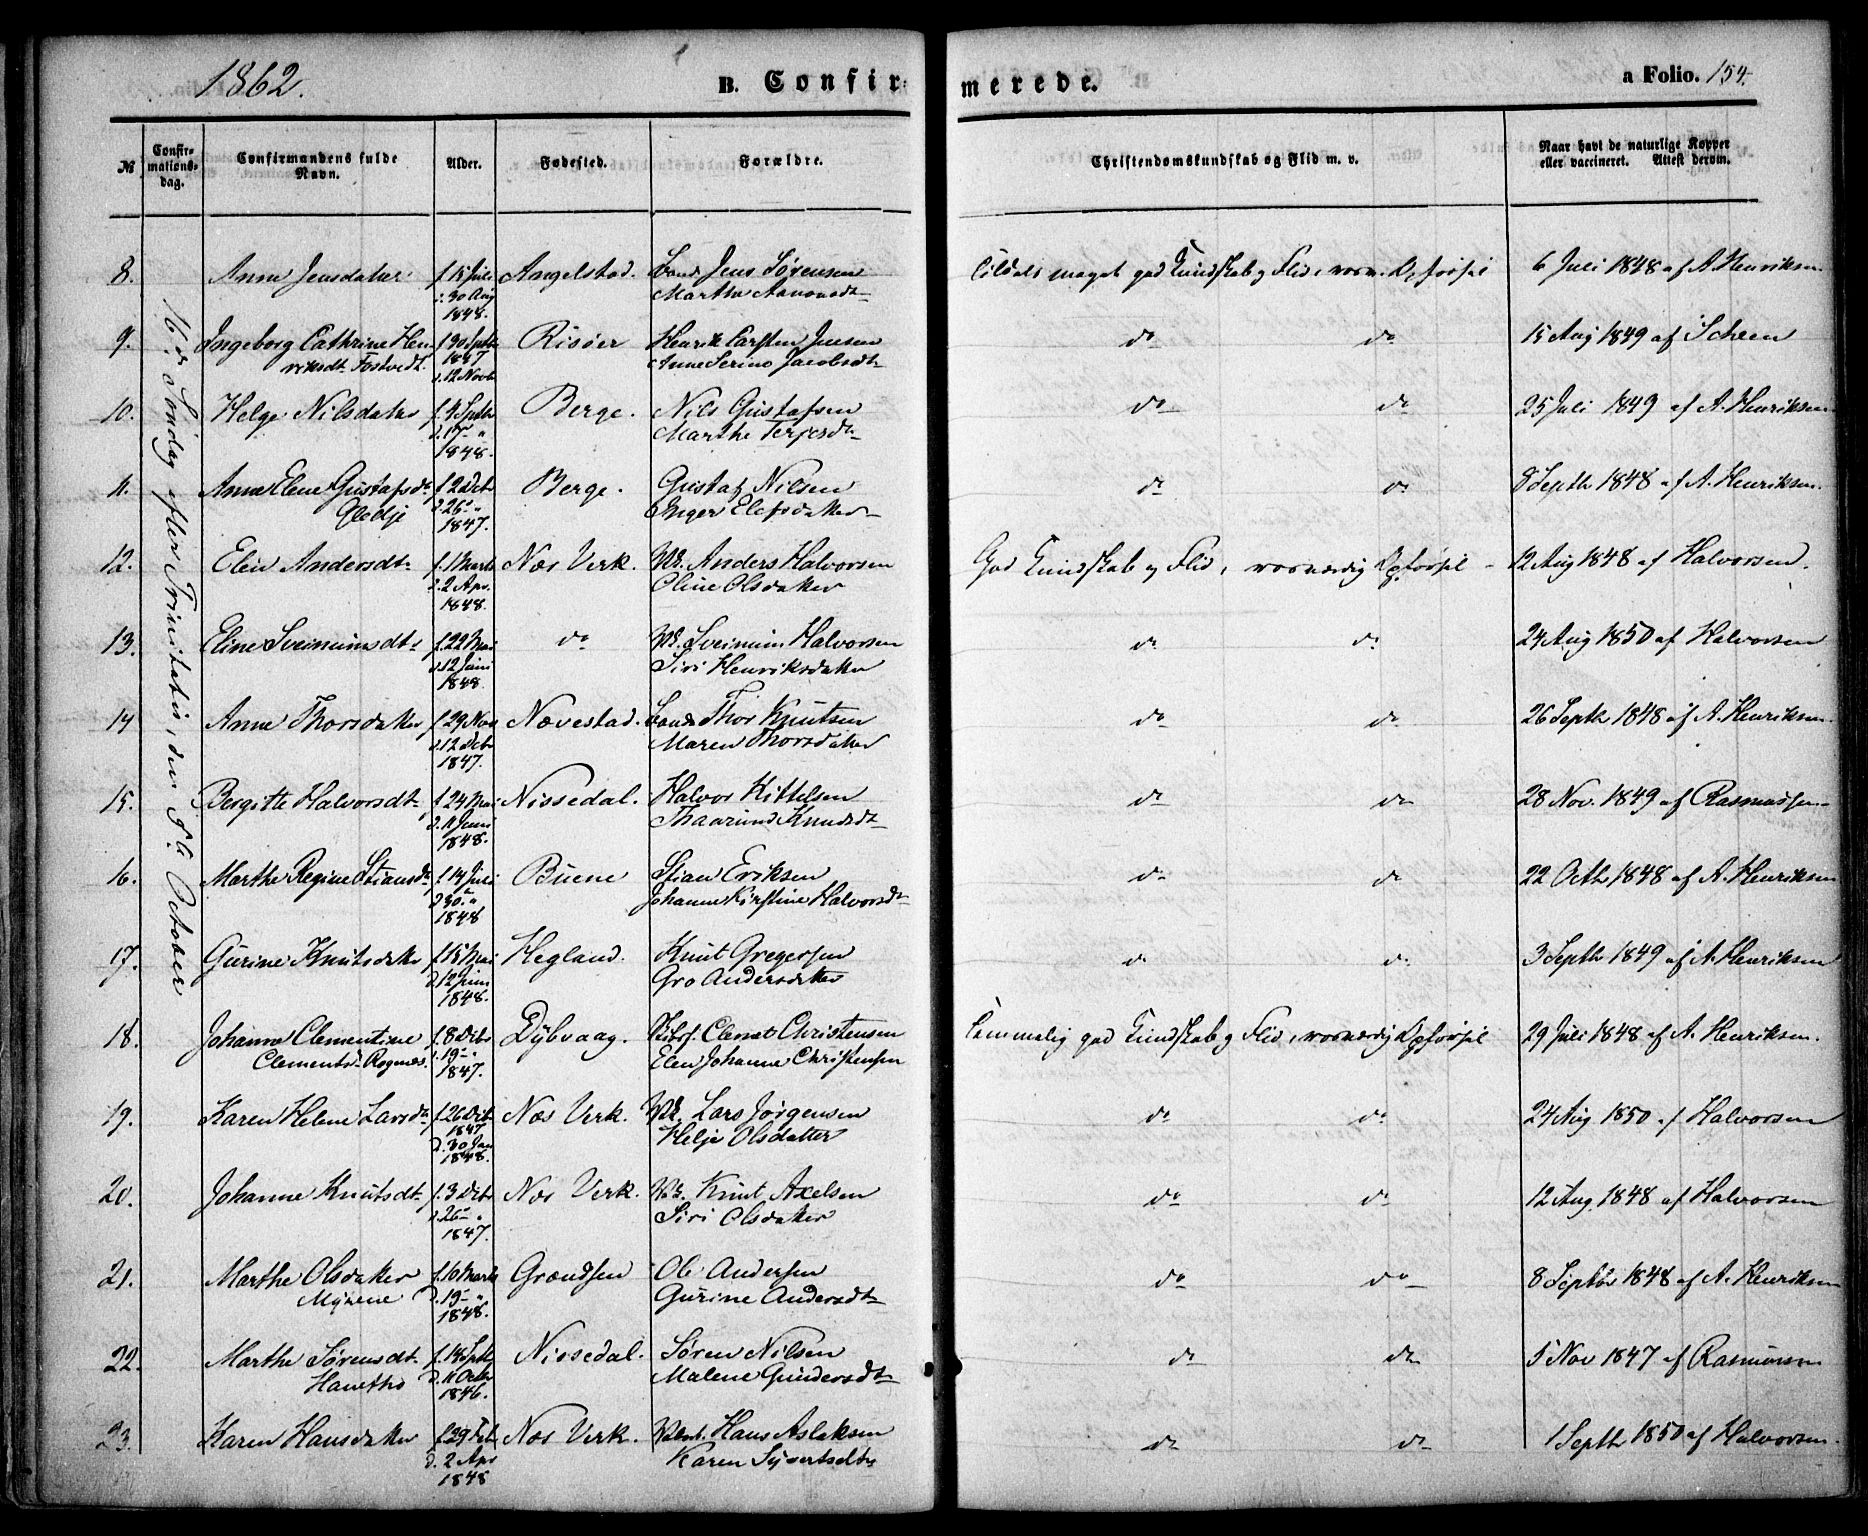 1862.
B. Confirmerede.
a Folio. 154.
№
Confirmationsdag.
Confirmandens fulde Navn.
Alder.
Fødested.
Forældre.
Christendomskundskab og Flid m. v.
Naar havt de naturlige Kopper eller vaccineret. Attest derom.
16de Søndag efter Trinitatis, den 5te October
8. Anne Jensdatter f. 15 Juli Angelstad. Jens Sørensen meget god Kundskab og Flid, Opførsel 6 Juli 1848 af A. Henriksen
d. 30 Aug Marthe Aanonsdt
1848.
9. Ingeborg Cathrine Hen f. 30 Septb Risøer Henrik Carsten Jensen do do 15 Aug 1849 af Scheen
riksdt. Fostvedt. 1847 Anne Serine Jacobsdt
d. 12 Novb
10. Helge Nilsdatter f. 4 Septb Berge. Nils Gustafsen do do 25 Juli 1849 af A. Henriksen
d. 17 " Marthe Terjesdt
1848.
11. Anne Elene Gustafsdt f. 2 Decbr Berge. Gustaf Nilsen do do 8 Septb 1848 af A. Henriksen.
d. 26 " Inger Elefsdatter
1847.
12. Elen Andersdt f. 1 Marts Næs Verk. Anders Halvorsen God Kundskab og Flid, vosværdig Opførsel 12 Aug 1848 af Halvorsen.
d. 2 Apr. Oline Olsdatter
1848.
13. Eline Sveinunsdt f. 22 Mai do Sveinun Halvorsen do do 24 Aug 1850 af Halvorsen
d. 12 Juni Siri Henriksdatter
1848
14 Anne Thorsdatter f. 29 Nov Nævestad. Thor Knutsen do do 26 Septb 1848 af A. Henriksen
d. 12 Decb Maren Thorsdatter
1847.
15. Bergitte Halvorsdt f. 24 Mai Nissedal. Halvor Kittelsen do do 28 Nov. 1849 af Rasmussen
d. 11 Juni Thaarund Knudsdt
1848.
16. Marthe Regine Stiansdt f. 14 Juli Buene Stian Eriksen do do 22 Octb 1848 af A. Henriksen
d. 30 " Johanne Kirstine Halvorsdt
1848
17. Gurine Knutsdatter f. 15 Mai Hegland. Knut Gregersen do do 3 Septb 1849 af A. Henriksen
d. 12 Juni Gro Andersdatter
1848.
18. Johanne Clementine f. 8 Decbr Dybvaag. Clemet Christensen Temmelig god Kundskab og Flid, vosværdig Opførsel 29 Juli 1848 af A. Henriksen.
Clementsdt. Rognæs. d. 19 " Elen Johanne Christensen
1847.
19. Karen Helene Larsdt f. 26 Decbr Næs Verk. Lars Jørgensen do do 24 Aug 1850 af Halvorsen
1847 Helje Olsdatter
d. 30 Jan
1848.
20. Johanne Knutsdt f. 3 Decbr Næs Verk. Knut Axelsen do do 12 Aug 1848 af Halvorsen
d. 26 " Siri Olsdatter
1847.
21. Marthe Olsdatter f. 10 Marts Grændsen Ole Andersen do do 8 Septbr 1848 af A. Henriksen
Myrene d. 19 " Gurine Andersdt
1848.
22. Marthe Sørensdt f. 14 Septb Nissedal. Søren Nilsen do do 5 Nov 1847 af Rasmussen
Hanetho d. 11 Octbr Malene Gundersdt
1846.
23. Karen Hansdatter f. 29 Feb Næs Verk. Hans Aslaksen do do 1 Septb 1850 af Halvorsen
d. 2 Apr Karen Syvertsdt
1848